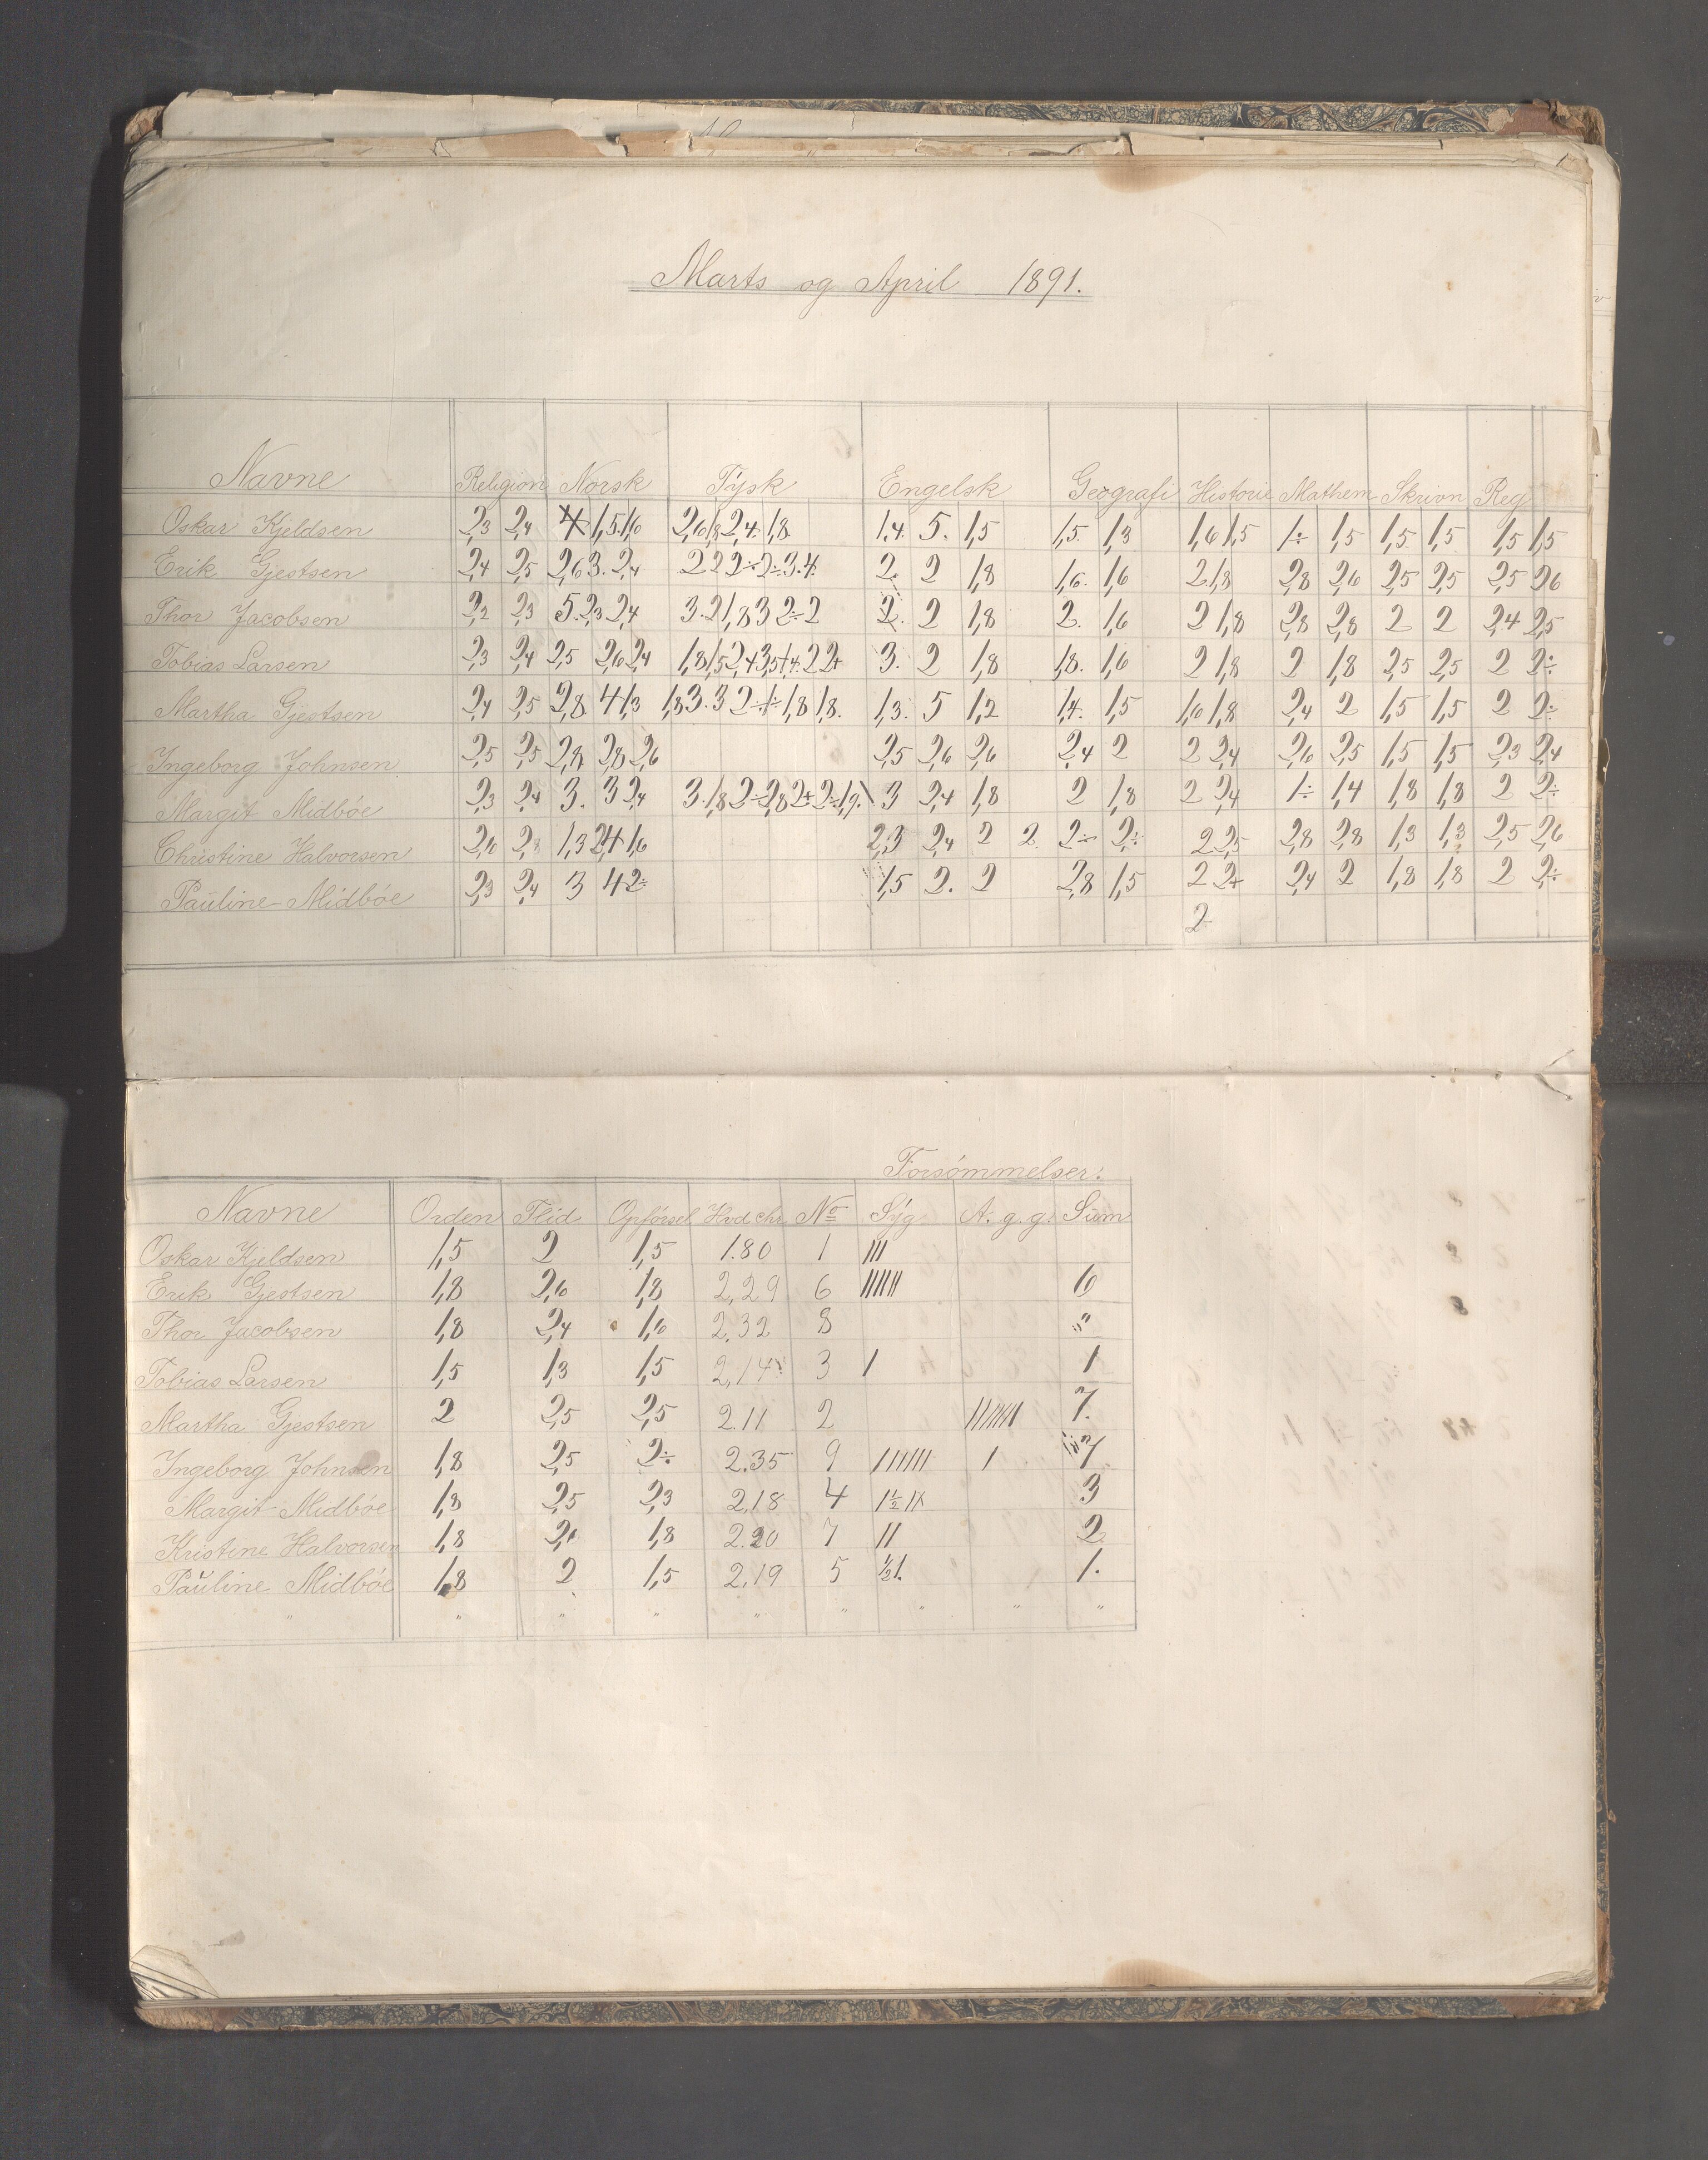 Marts og April 1891.
Navne Religion Norsk Tysk Engelsk Geografi Historie Mathem Skrivn Reg
Oskar Kjeldsen 2,3 2,4 4 1,5. 1,6 2,6 1,8 2,4. 1,8. 1,4. 5. 1,5 1,5. 1,3 1,6 1,5 1÷ 1,5 1,5 1,5 1,5 1,5
Erik Gjestsen 2,4 2,5 2,6 3. 2,4 2 2 2÷ 2÷ 3. 4. 2. 2 1,8 1,6. 1,6 2 1,8 2,8 2,6 2,5 2,5 2,5 2,6
Thor Jacobsen 2,2 2,3 5. 2,3 2,4 3. 2 1,8 3 2÷ 2 2. 2 1,8 2. 1,6 2 1,8 2,8 2,8 2 2 2,4 2,5
Tobias Larsen 2,3 2,4 2,5 2,6 2,4 3. 2 1,8 1,8. 1,6 2 1,8 2 1,8 2,5 2,5 2 2÷
Martha Gjestsen 2,4 2,5 2,8 4 1,3 1,8 3. 3 2÷ 1÷ 1,8 1,8. 1,3. 5 1,2 1,4. 1,5 1,6 1,8 2,4 2 1,5 1,5 2 2÷
Ingeborg Johnsen 2,5 2,5 2,8 2,8 2,6 2,5 2,6 2,6 2,4 2 2 2,4 2,6 2,5 1,5 1,5 2,3 2,4
Margit Midbóe 2,3 2,4 3. 3 2,4 3. 1,8 2÷ 2,8 2+ 2÷ 1,9. 3 2,4 1,8 2 1,8 2 2,4 1÷ 1,4 1,8 1,8 2 2÷
Christine Halvorsen 2,6 2,8 1,3 2,4 1,6 2,3 2,4 2 2 2÷ 2÷ 2 2,5 2,8 2,8 1,3 1,3 2,5 2,6
Pauline Midbóe 2,3 2,4 3 4 2÷ 1,5 2. 2 2,8 1,5 2 2+ 2,4 2 1,8 1,8 2 2÷
2
Forsömmelser:
Navne Orden Flid Opförsel Hvd chr No Syg A. g. g. Sum
Oskar Kjeldsen 1,5 2 1,5 1.80 1 |||
Erik Gjestsen 1,8 2,6 1,8 2,29 6 |||||| 6
Thor Jacobsen 1,8 2,4 1,6 2.32 8 "
Tobias Larsen 1,5 1,3 1,5 2,14 3 1 1
Martha Gjestsen 2 2,5 2,5 2.11 2 ||||||| 7.
Ingeborg Johnsen 1,8 2,5 2÷ 2.35 9 |||||| 1 7
Margit Midbóe 1,8 2,5 2,3 2,18 4 1½ 3
Kristine Halvorsen 1,8 1,8 2.20 7 || 2
Pauline Midbóe 1,8 2 1,5 2,19 5 ½ 1. 1.
" " " " " " " " "